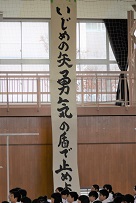 いじめの矢勇気の盾で止め